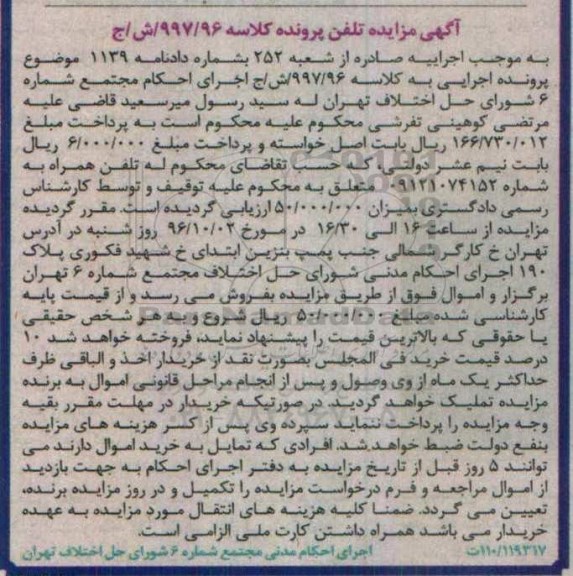 آگهی مزایده تلفن پرونده کلاسه ۹۹۷/۹۶/ش/ج
به موجب اجراییه صادره از شعبه ۲۵۲ بشماره دادنامه ۱۱۳۹ موضوع
پرونده اجرایی به کلاسه ۹۹۷/۹۶/ش/ج اجرای احکام مجتمع شماره
۶ شورای حل اختلاف تهران له سید رسول میرسعید قاضی علیه
مرتضی کوهینی تفرشی محکوم علیه محکوم است به پرداخت مبلغ
۱۶۶/۷۳۰/۰۱۲ ریال بابت اصل خواسته و پرداخت مبلغ ۶/۰۰۰/۰۰۰ ریال
بابت نیم عشر دولتی که حسب تقاضای محکوم له تلفن همراه به
شماره ۰۹۱۲۱۰۷۴۱۵۲ متعلق به محکوم علیه توقیف و توسط کارشناس
رسمی دادگستری بمیزان ۵۰/۰۰۰/۰۰۰ ارزیابی گردیده است. مقرر گردیده
مزایده از ساعت ۱۶ الی ۱۶/۳۰ در مورخ ۹۶/۱۰/۰۲ روز شنبه در آدرس
تهران خ کارگر شمالی جنب پمپ بنزین ابتدای خ شهید فکوری پلاک
۱۹۰ اجرای احکام مدنی شورای حل اختلاف مجتمع شماره ۶ تهران
برگزار و اموال فوق از طریق مزایده بفروش می رسد و از قیمت پایه
کارشناسی شده مبلغ ۵۰/۰۰۰/۰۰۰ ریال شروع و به هر شخص حقیقی
یا حقوقی که بالاترین قیمت را پیشنهاد نماید، فروخته خواهد شد ۱۰
درصد قیمت خرید فی المجلس بصورت نقد از خریدار اخذ و الباقی ظرف
حداکثر یک ماه از وی وصول و پس از انجام مراحل قانونی اموال به برنده
مزایده تملیک خواهد گردید. در صورتیکه خریدار در مهلت مقرر بقیه
وجه مزایده را پرداخت ننماید سپرده وی پس از کسر هزینه های مزایده
بنفع دولت ضبط خواهد شد. افرادی که تمایل به خرید اموال دارند می
توانند ۵ روز قبل از تاریخ مزایده به دفتر اجرای احکام به جهت بازدید
از اموال مراجعه و فرم درخواست مزایده را تکمیل و در روز مزایده برنده،
تعیین می گردد. ضمنا کلیه هزینه های انتقال مورد مزایده به عهده
خریدار می باشد همراه داشتن کارت ملی الزامی است.
۱۱۰/۱۱۹۳۱۷ت اجرای احکام مدنی مجتمع شماره ۶ شورای حل اختلاف تهران